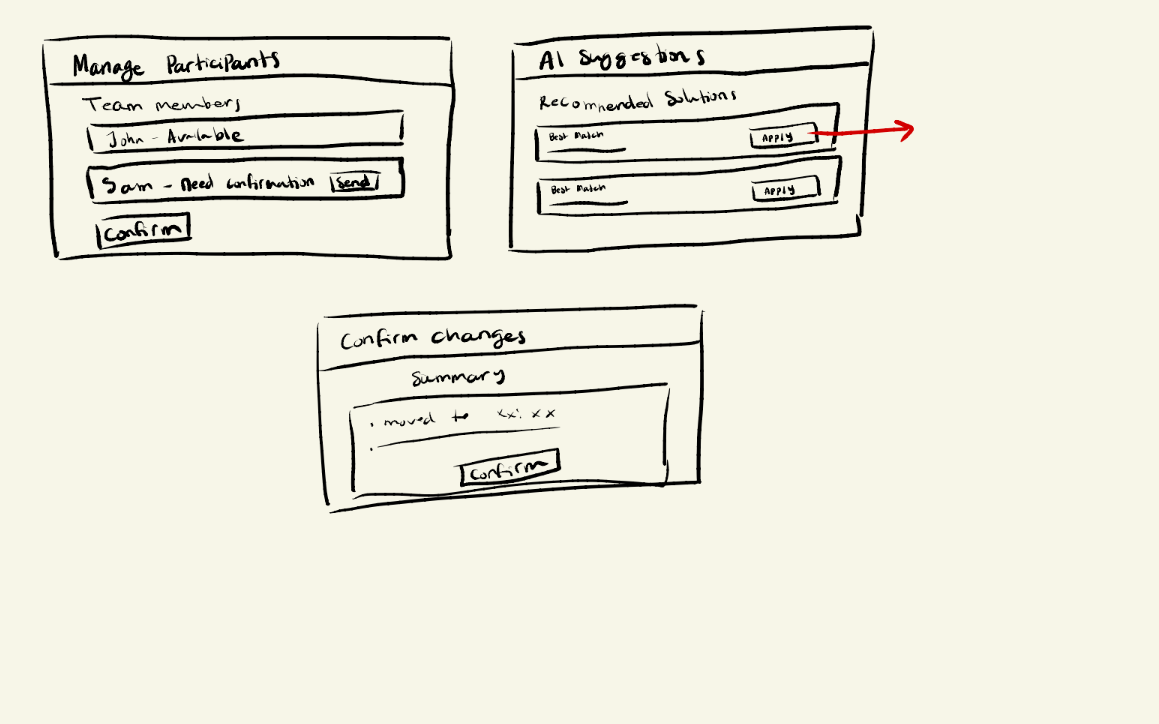 Manage Participants
Team members
John - Available
Sam - Need confirmation Send
Confirm
AI Suggestions
Recommended Solutions
Best Match Apply
Best Match Apply
Confirm changes
Summary
. moved to xx:xx
.
Confirm